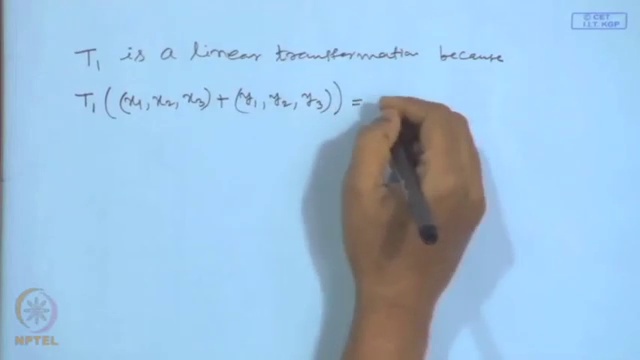 © CET
I.I.T. KGP
T₁ is a linear transformation because
T₁((x₁, x₂, x₃) + (y₁, y₂, y₃)) =
NPTEL